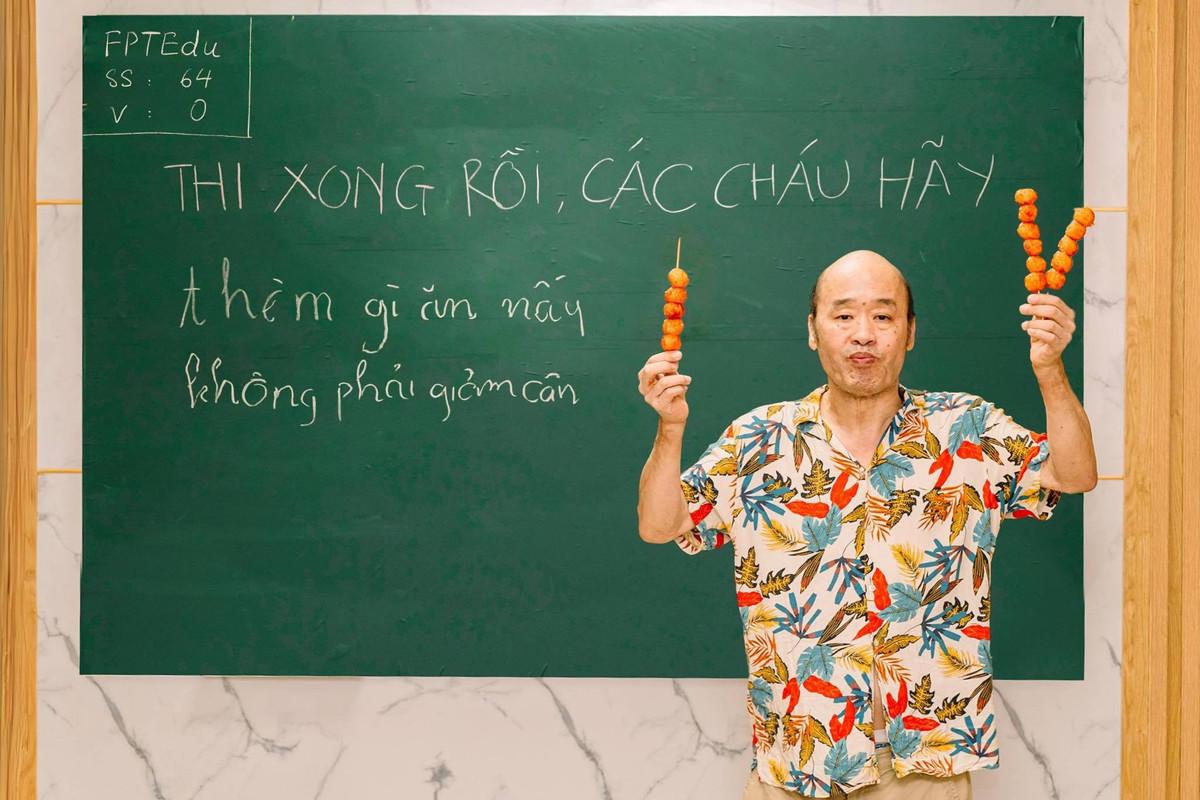 FPTEdu
SS : 64
V : 0
THI XONG RỒI, CÁC CHÁU HÃY
thèm gì ăn nấy
không phải giảm cân